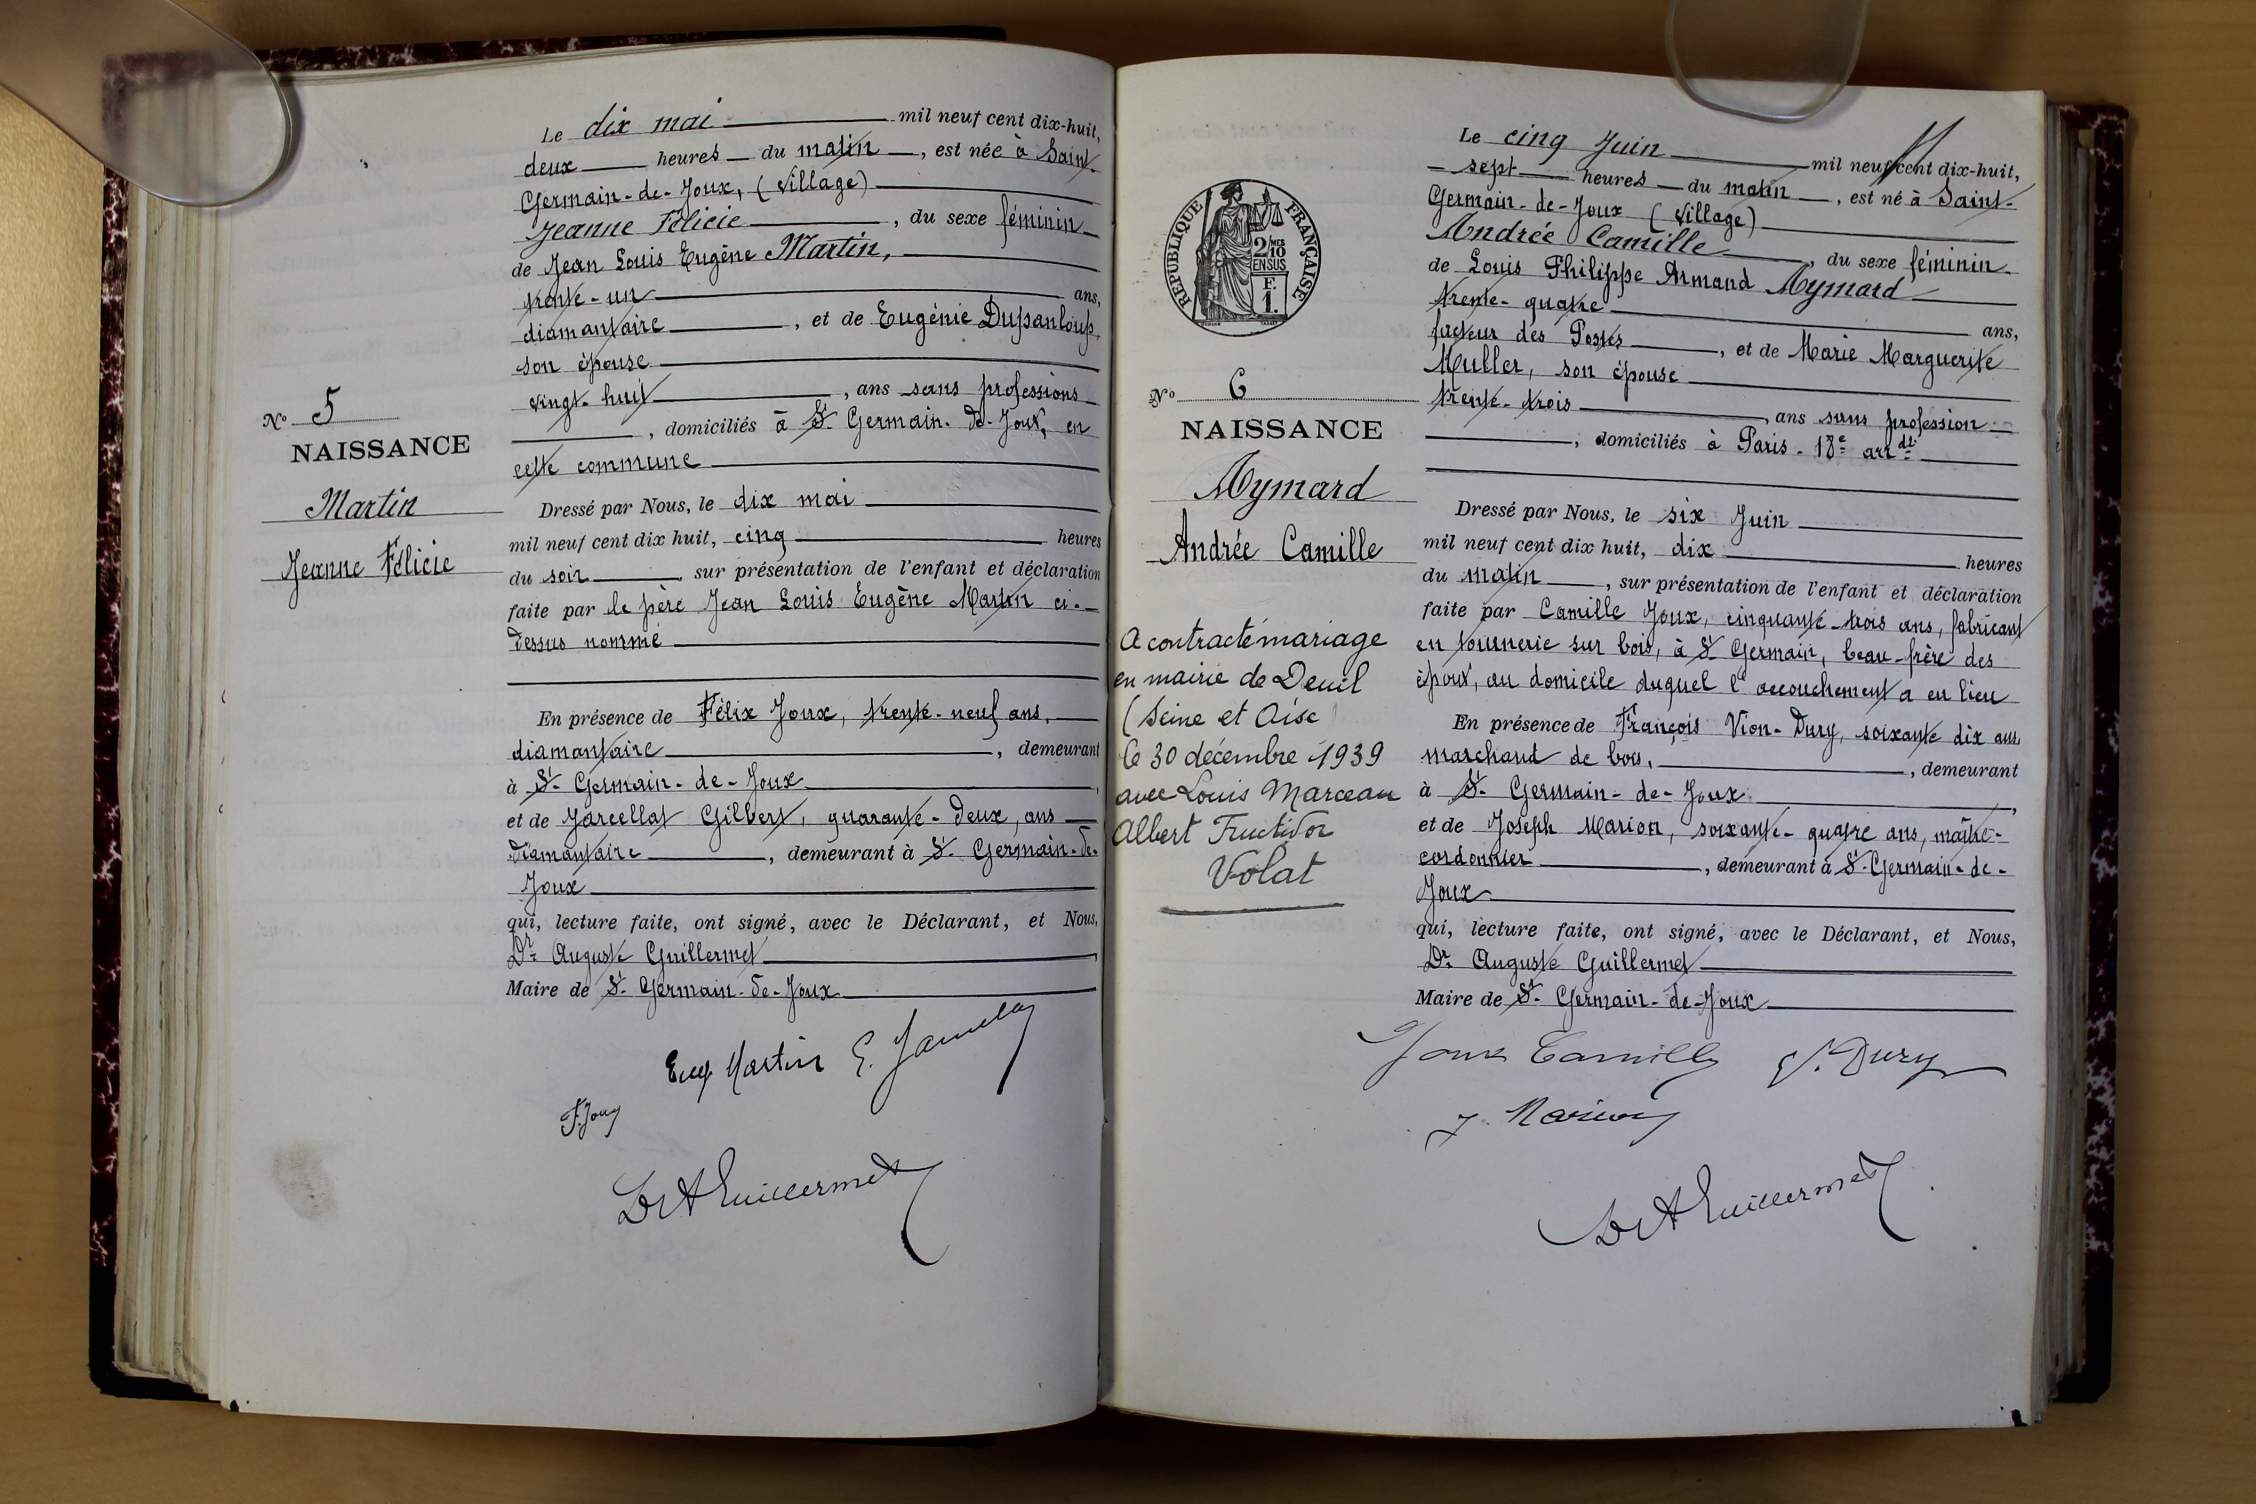 Le dix mai mil neuf cent dix-huit,
deux heures du matin, est née à Saint-
Germain-de-Joux, (village)
Jeanne Félicie, du sexe féminin
de Jean Louis Eugène Martin,
trente-un ans,
diamantaire, et de Eugénie Dupanloup
son épouse
vingt-huit, ans sans professions
, domiciliés à St Germain-de-Joux, en
cette commune
No 5
NAISSANCE
Martin
Jeanne Félicie
Dressé par Nous, le dix mai
mil neuf cent dix huit, cinq heures
du soir, sur présentation de l'enfant et déclaration
faite par le père Jean Louis Eugène Martin ci-
dessus nommé
En présence de Félix Joux, trente-neuf ans,
diamantaire, demeurant
à St Germain-de-Joux,
et de Gilbert, quarante-deux, ans
diamantaire, demeurant à St Germain-de-
Joux
qui, lecture faite, ont signé, avec le Déclarant, et Nous,
Dr Auguste Guillermet
Maire de St Germain-de-Joux
Eug Martin
F. Joux
Dr A Guillermet
Le cinq Juin mil neuf cent dix-huit,
sept heures du matin, est né à Saint-
Germain-de-Joux (village)
Andrée Camille, du sexe féminin
de Louis Philippe Armand Aymard
trente-quatre ans,
facteur des Postes, et de Marie Marguerite
Muller, son épouse
trente-trois, ans sans profession
, domiciliés à Paris-18e arrdt
RÉPUBLIQUE FRANÇAISE
2/10 MES
EN SUS
F.
1.
No 6
NAISSANCE
Aymard
Andrée Camille
A contracté mariage
en mairie de Deuil
(Seine et Oise
le 30 décembre 1939
avec Louis Marceau
Albert Fructidor
Volat
Dressé par Nous, le six Juin
mil neuf cent dix huit, dix heures
du matin, sur présentation de l'enfant et déclaration
faite par Camille Joux, cinquante-trois ans, fabricant
en tournerie sur bois, à St Germain, beau-frère des
époux, au domicile duquel l'accouchement a eu lieu
En présence de François Vion-Dury, soixante dix ans
marchand de bois, demeurant
à St Germain-de-Joux,
et de Joseph Marion, soixante-quatre ans, maître-
cordonnier, demeurant à St-Germain-de-
Joux
qui, lecture faite, ont signé, avec le Déclarant, et Nous,
Dr Auguste Guillermet
Maire de St Germain-de-Joux
Joux Camille V. Dury
J. Marion
Dr A Guillermet